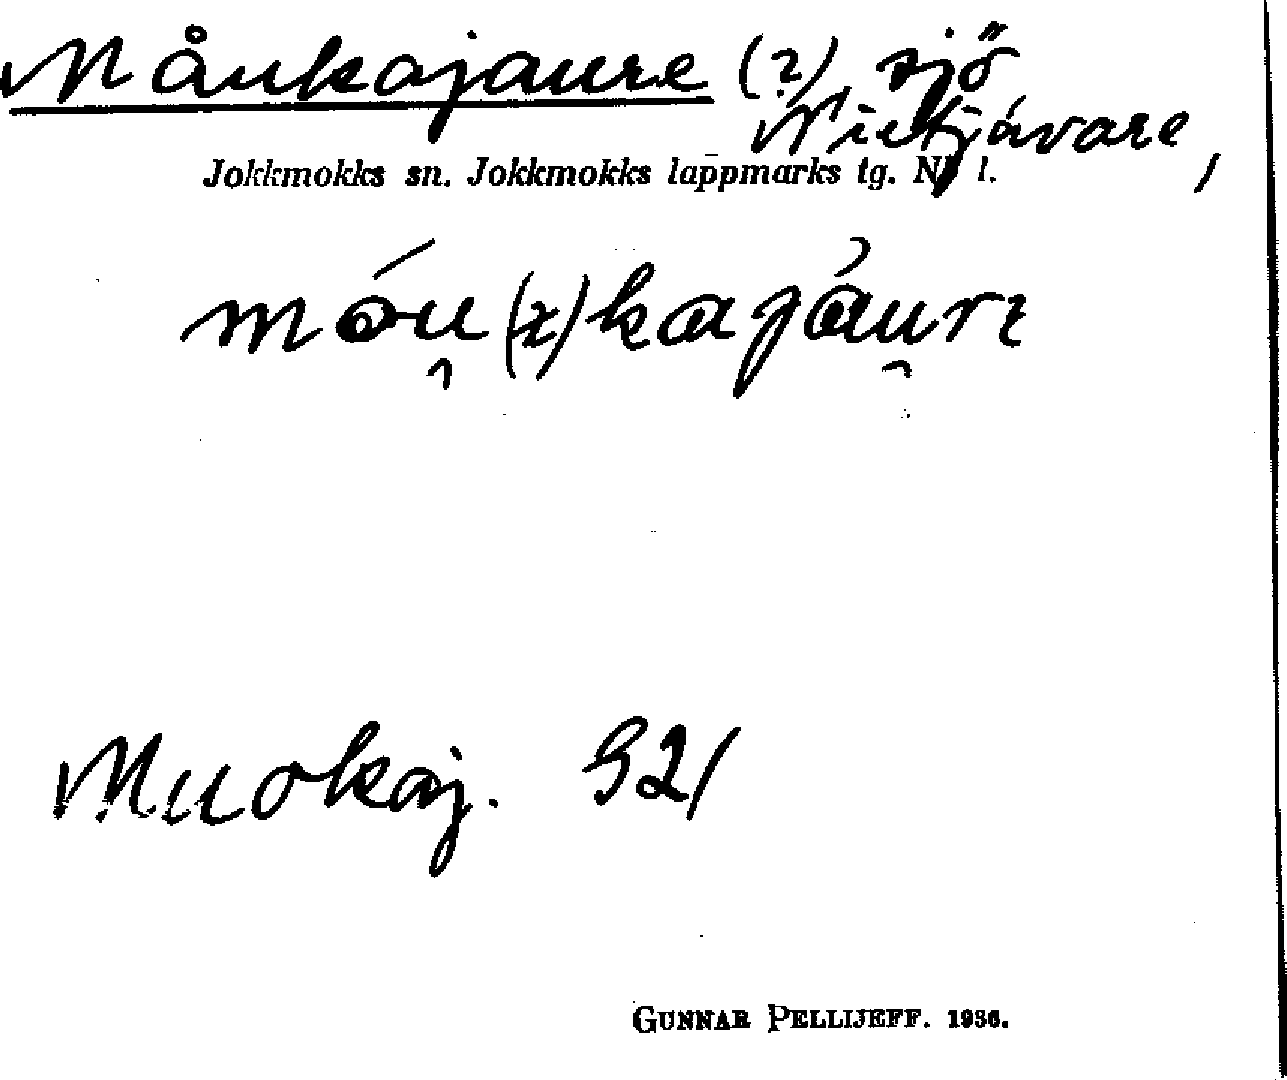 Måukajaure (?), sjö
Nietjávare,
Jokkmokks sn. Jokkmokks lappmarks tg. Nb l.
Muokaj. 921
GUNNAR PELLIJEFF. 1936.